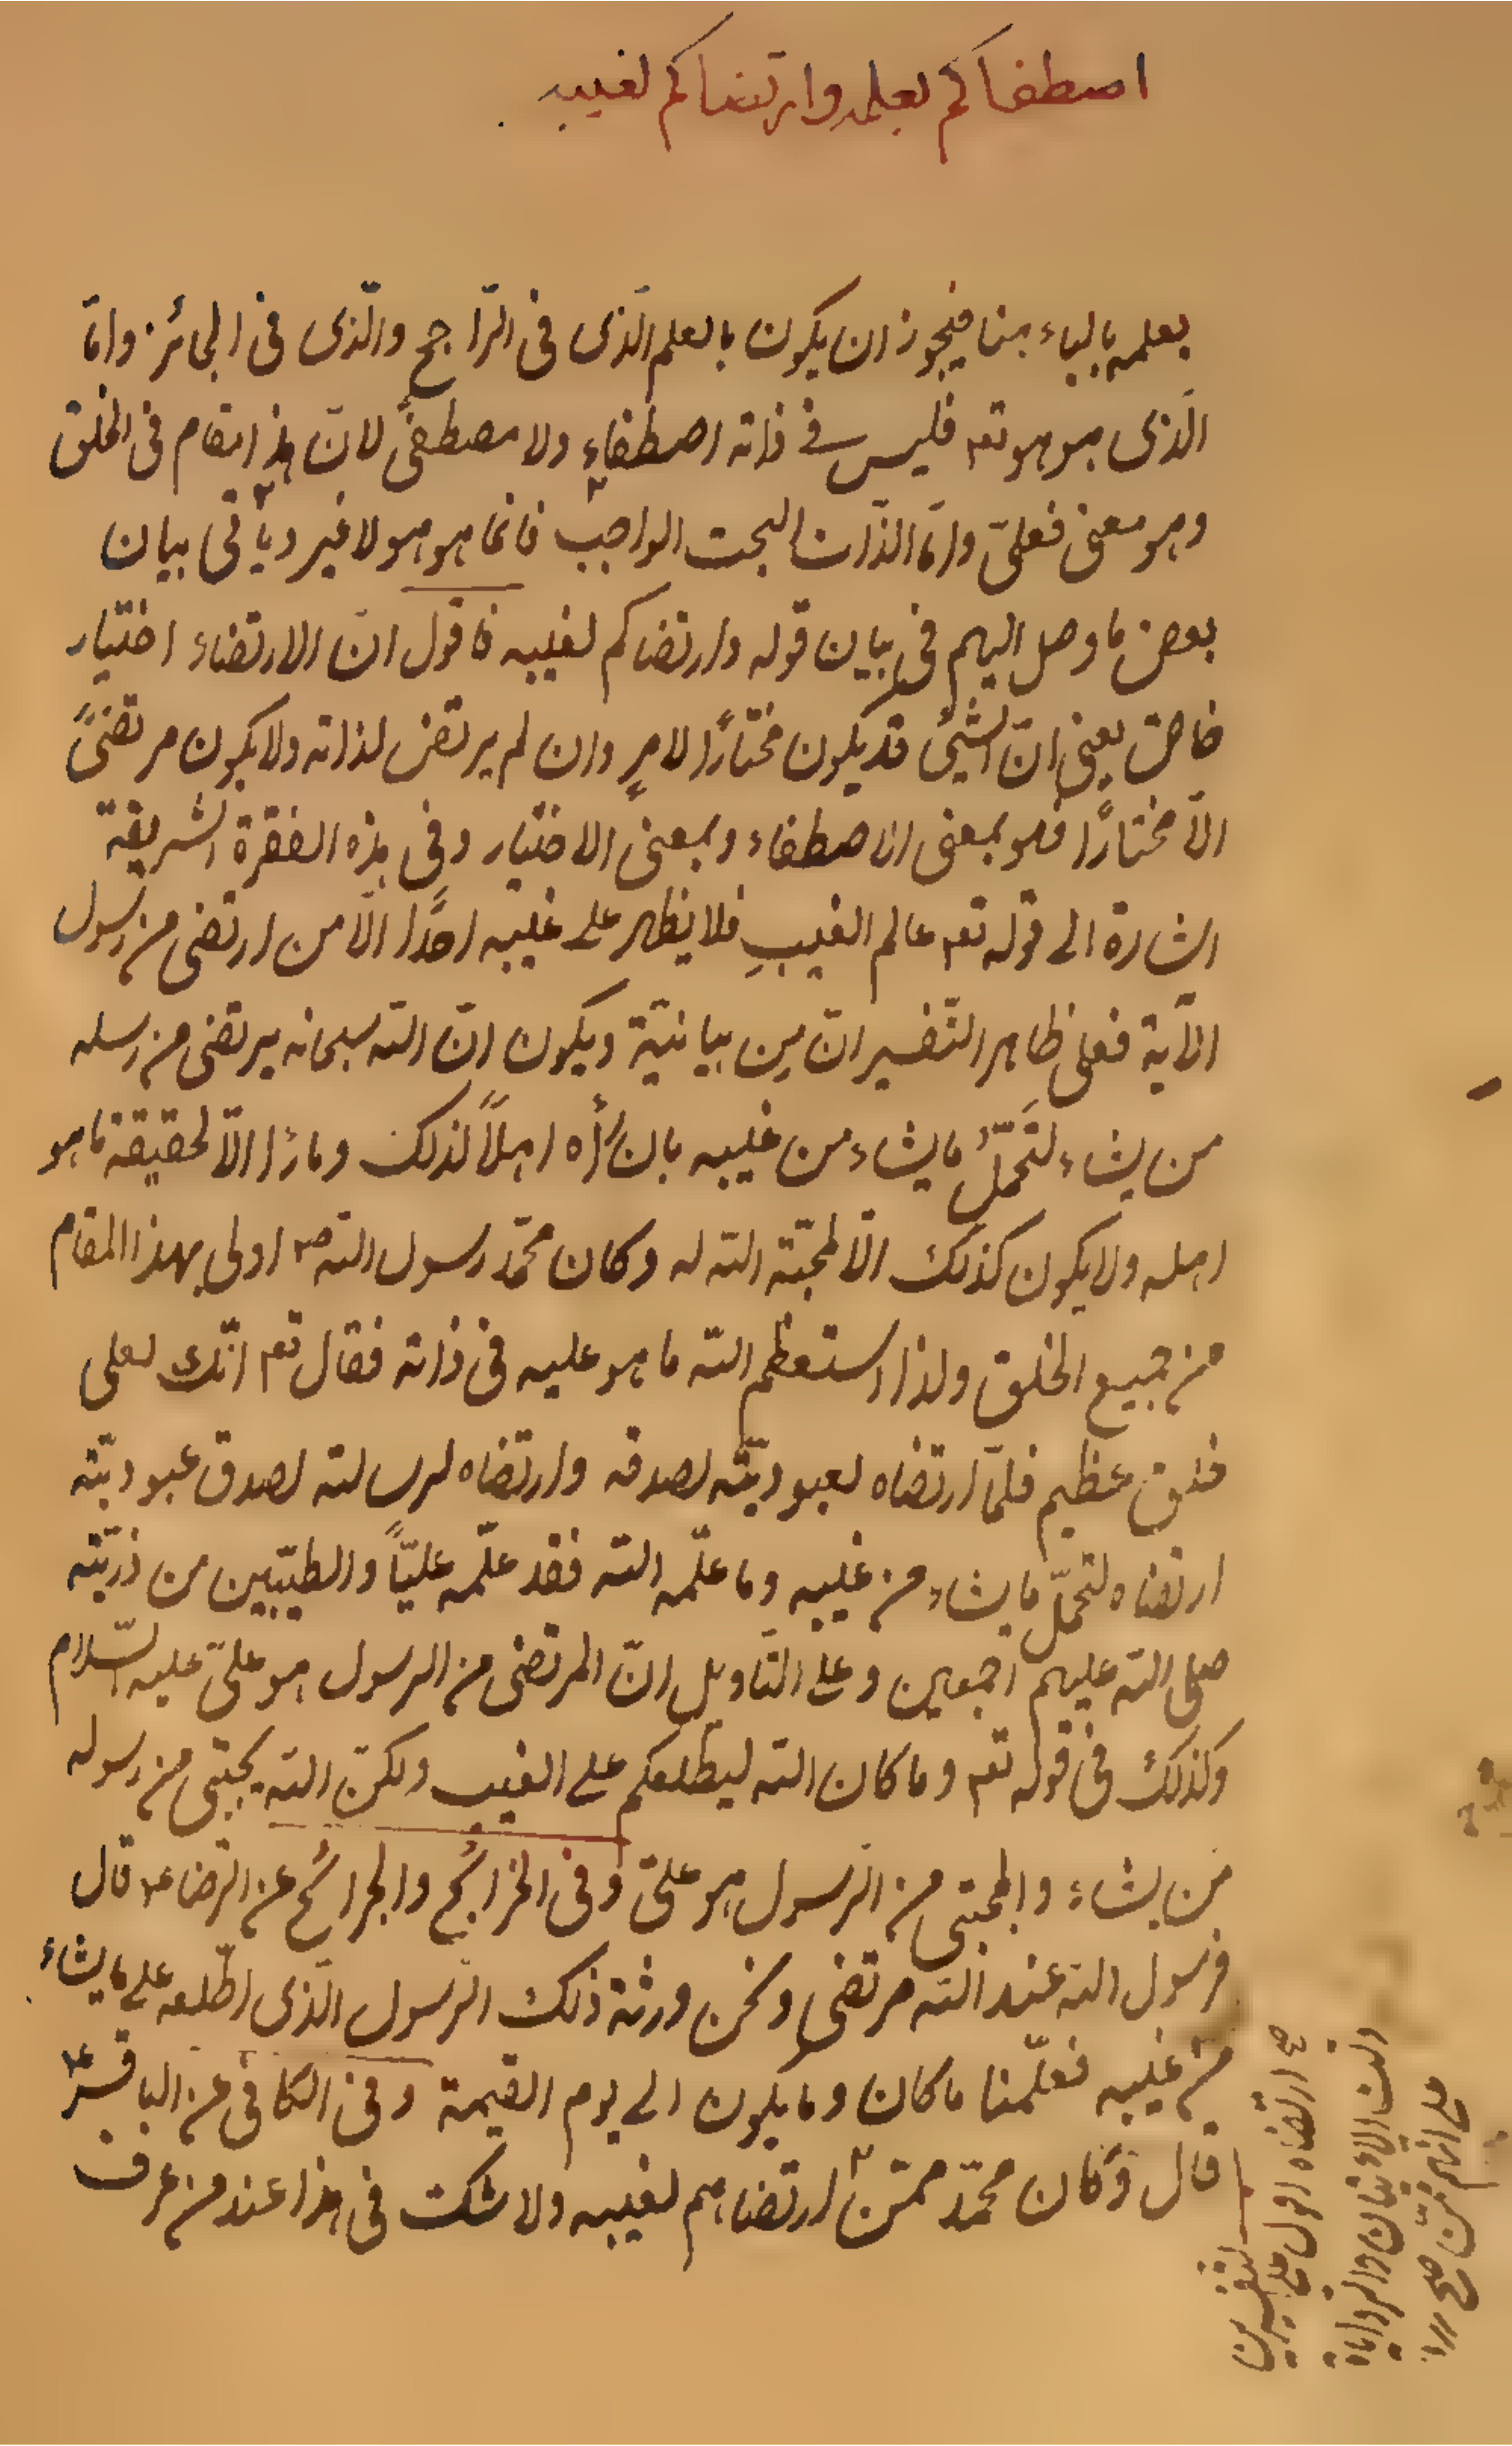 اصطفاكم بعلمه وارتضاكم لغيبه
بعلمه بالباء هنا فيجوز ان يكون بالعلم الّذى فى الرّاجح والّذى فى الجائز وامّا
الّذى هو هو تعه فليس فى ذاته اصطفاء ولا مصطفىً لانّ هذا مقام فى الخلق
وهو معنى فعلىّ وامّا الذّات البحت الواجب فانما هو هو لا غير ويأتى بيان
بعض ما وصل اليهم فى بيان قوله وارتضاكم لغيبه فاقول انّ الارتضاء اختيار
خاصّ يعنى انّ الشّيئ قد يكون مختارًا لامرٍ وان لم يرتض لذاته ولا يكون مرتضىً
الّا مختارًا فهو بمعنى الاصطفاء وبمعنى الاختيار وفى هذه الفقرة الشّريفة
اشارة الى قوله تعه عالم الغيبِ فلا يظهر على غيبه احدًا الّا من ارتضى من رسول
الآية فعلى ظاهر التّفسير انّ مِن بيانيّة ويكون انّ اللّه سبحانه يرتضى من رسله
من يشاء لتحمّل ما يشاء من غيبه بان رأه اهلاً لذلك وما رأا الّا لحقيقة ما هو
اهله ولا يكون كذلك الّا لمحبّة اللّه له وكان محمّد رسول اللّه ص اولى بهذا المقام
من جميع الخلق ولذا استعظم اللّه ما هو عليه فى ذاته فقال تعه انّك لعلى
خلق عظيم فلمّا ارتضاه لعبوديّته لصدقه وارتضاه لرسالته لصدق عبوديّته
ارتضاه لتحمّل ما يشاء من غيبه وما علّمه اللّه فقد علّمه عليّاً والطيّبين من ذرّيّته
صلى اللّه عليهم اجمعين وعلى التّاويل انّ المرتضى من الرسول هو علىّ عليه السّلام
وكذلك فى قوله تعه وما كان اللّه ليطلعكم على الغيب ولكنّ اللّه يجتبى من رسوله
من يشاء والمجتبى من الرّسول هو علىّ وفى الخرائج والجرائح عن الرّضا ع قال
فرسول اللّه عند اللّه مرتضى ونحن ورثة ذلك الرّسول الّذى اطّلعه على ما يشاء
من غيبه فعلّمنا ما كان وما يكون الى يوم القيمة وفى الكافى عن الباقر ع
قال وكان محمّد ممّن ارتضاهم لغيبه ولا شكّ فى هذا عند من عرف
ارتضاه اقول على
التفسيرين
دلّت الايتان والروايات
على انهم ممّن